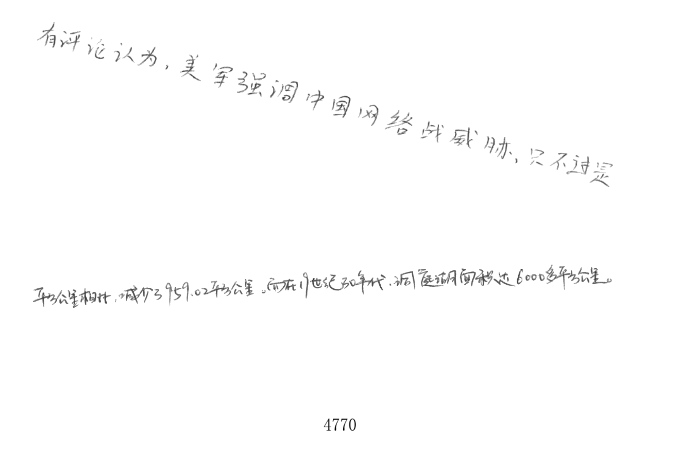 有评论认为,美军强调中国网络战威胁,只不过是
平方公里相比,减少了959.02平方公里。而在19世纪30年代,洞庭湖面积达6000多平方公里。
4770